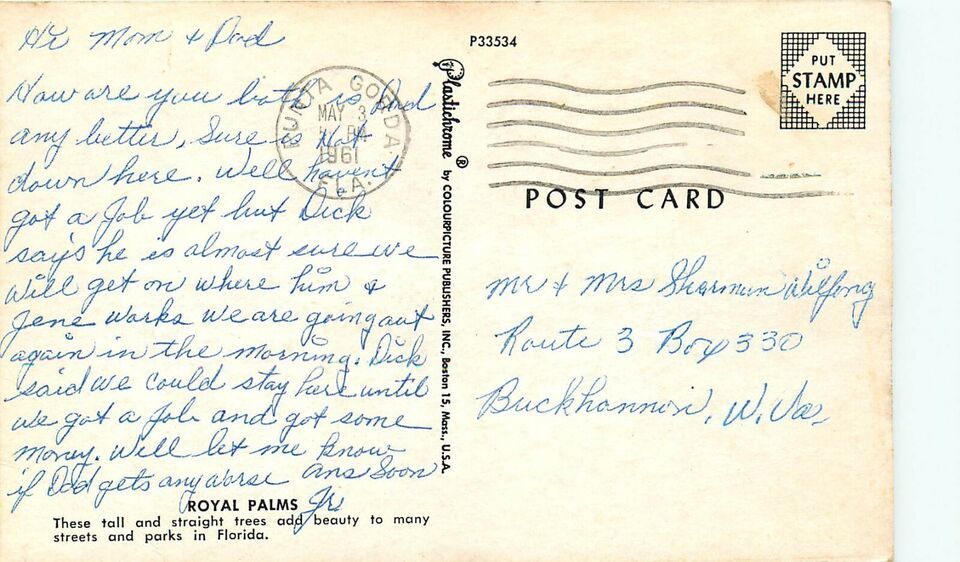 Hi Mom & Dad
How are you both is Dad
any better, Sure is Hot
down here. Well havent
got a Job yet but Dick
say's he is almost sure we
will get on where him &
Jene works we are going out
again in the morning. Dick
said we could stay here until
we got a Job and got some
money. Will let me know
if Dad gets any worse Ans Soon
Jr.
ROYAL PALMS
These tall and straight trees add beauty to many
streets and parks in Florida.
PUNTA GORDA
MAY 3
PM
1961
FLA.
Plastichrome ® by COLOURPICTURE PUBLISHERS, INC., Boston 15, Mass., U.S.A.
P33534
PUT
STAMP
HERE
POST CARD
Mr & Mrs Sharman Wilfong
Route 3 Box 330
Buckhannon, W. Va.